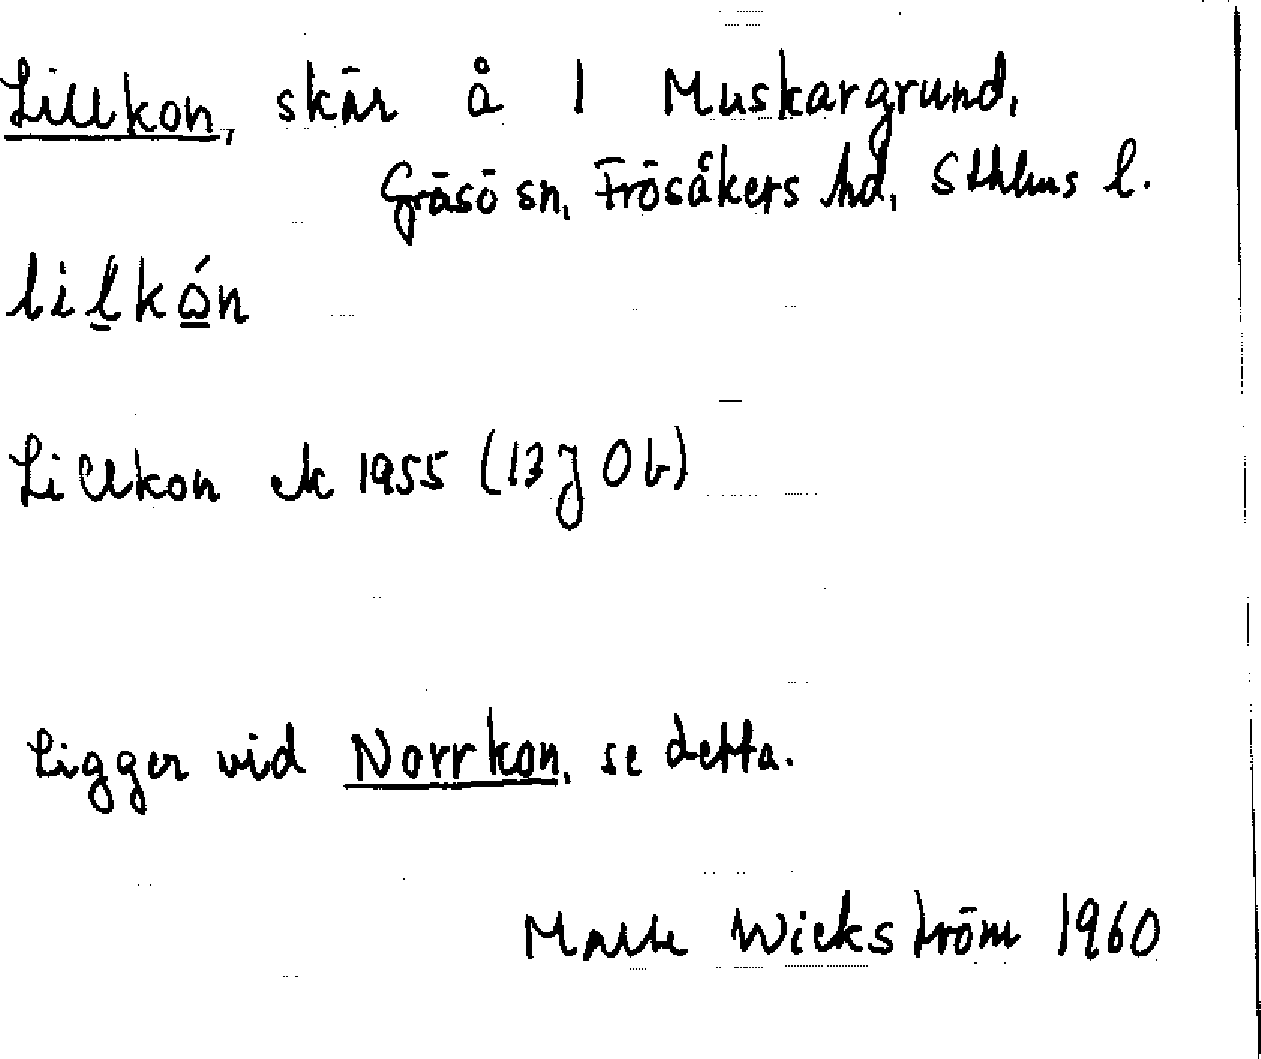 Lillkon, skär å 1 Muskargrund,
Gräsö sn, Frösåkers hd, Sthlms l.
lilkón
Lillkon ek 1955 (13 J 0 b)
Ligger vid Norrkon, se detta.
Malle Wickström 1960